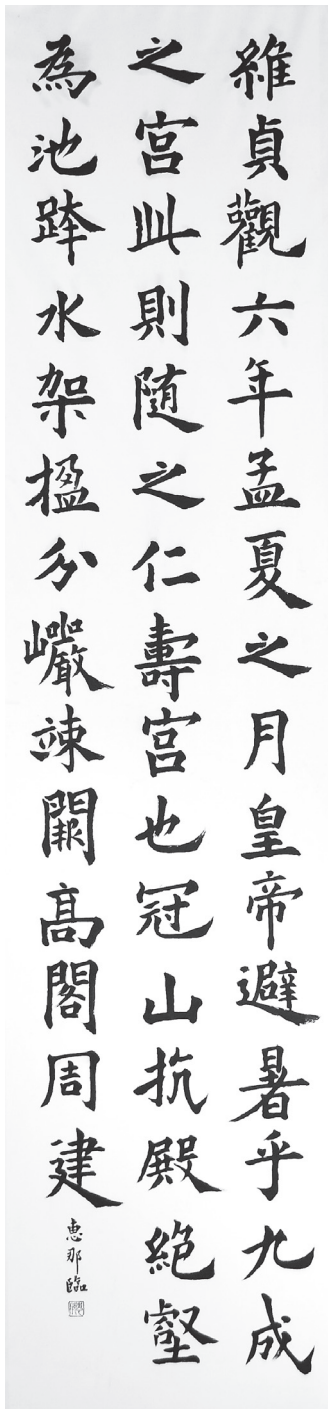 維貞觀六年孟夏之月皇帝避暑乎九成
之宮此則随之仁壽宮也冠山抗殿絶壑
為池跨水架楹分巗竦闕髙閣周建
恵那臨